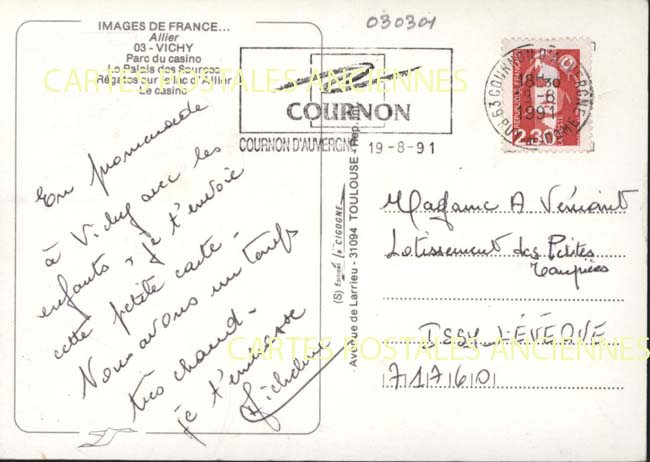 IMAGES DE FRANCE...
Allier
03 - VICHY
Parc du casino
Le Palais des Sources
Régates sur le lac d'Allier
Le casino
CARTES POSTALES ANCIENNES
En promenade
à Vichy avec les
enfants, je t'envoie
cette petite carte -
Nous avons un temps
très chaud -
je t'embrasse
Micheline
030301
COURNON
COURNON D'AUVERGNE
19-8-91
63 COURNON D'AUVERGNE
18H30
1991
PUY DE DOME
2,30
(S) Editions "la CIGOGNE"
Avenue de Larrieu - 31094 TOULOUSE
Madame A
Lotissement des Petites
ISSY L'ÉVÊQUE
71760
CARTES POSTALES ANCIENNES